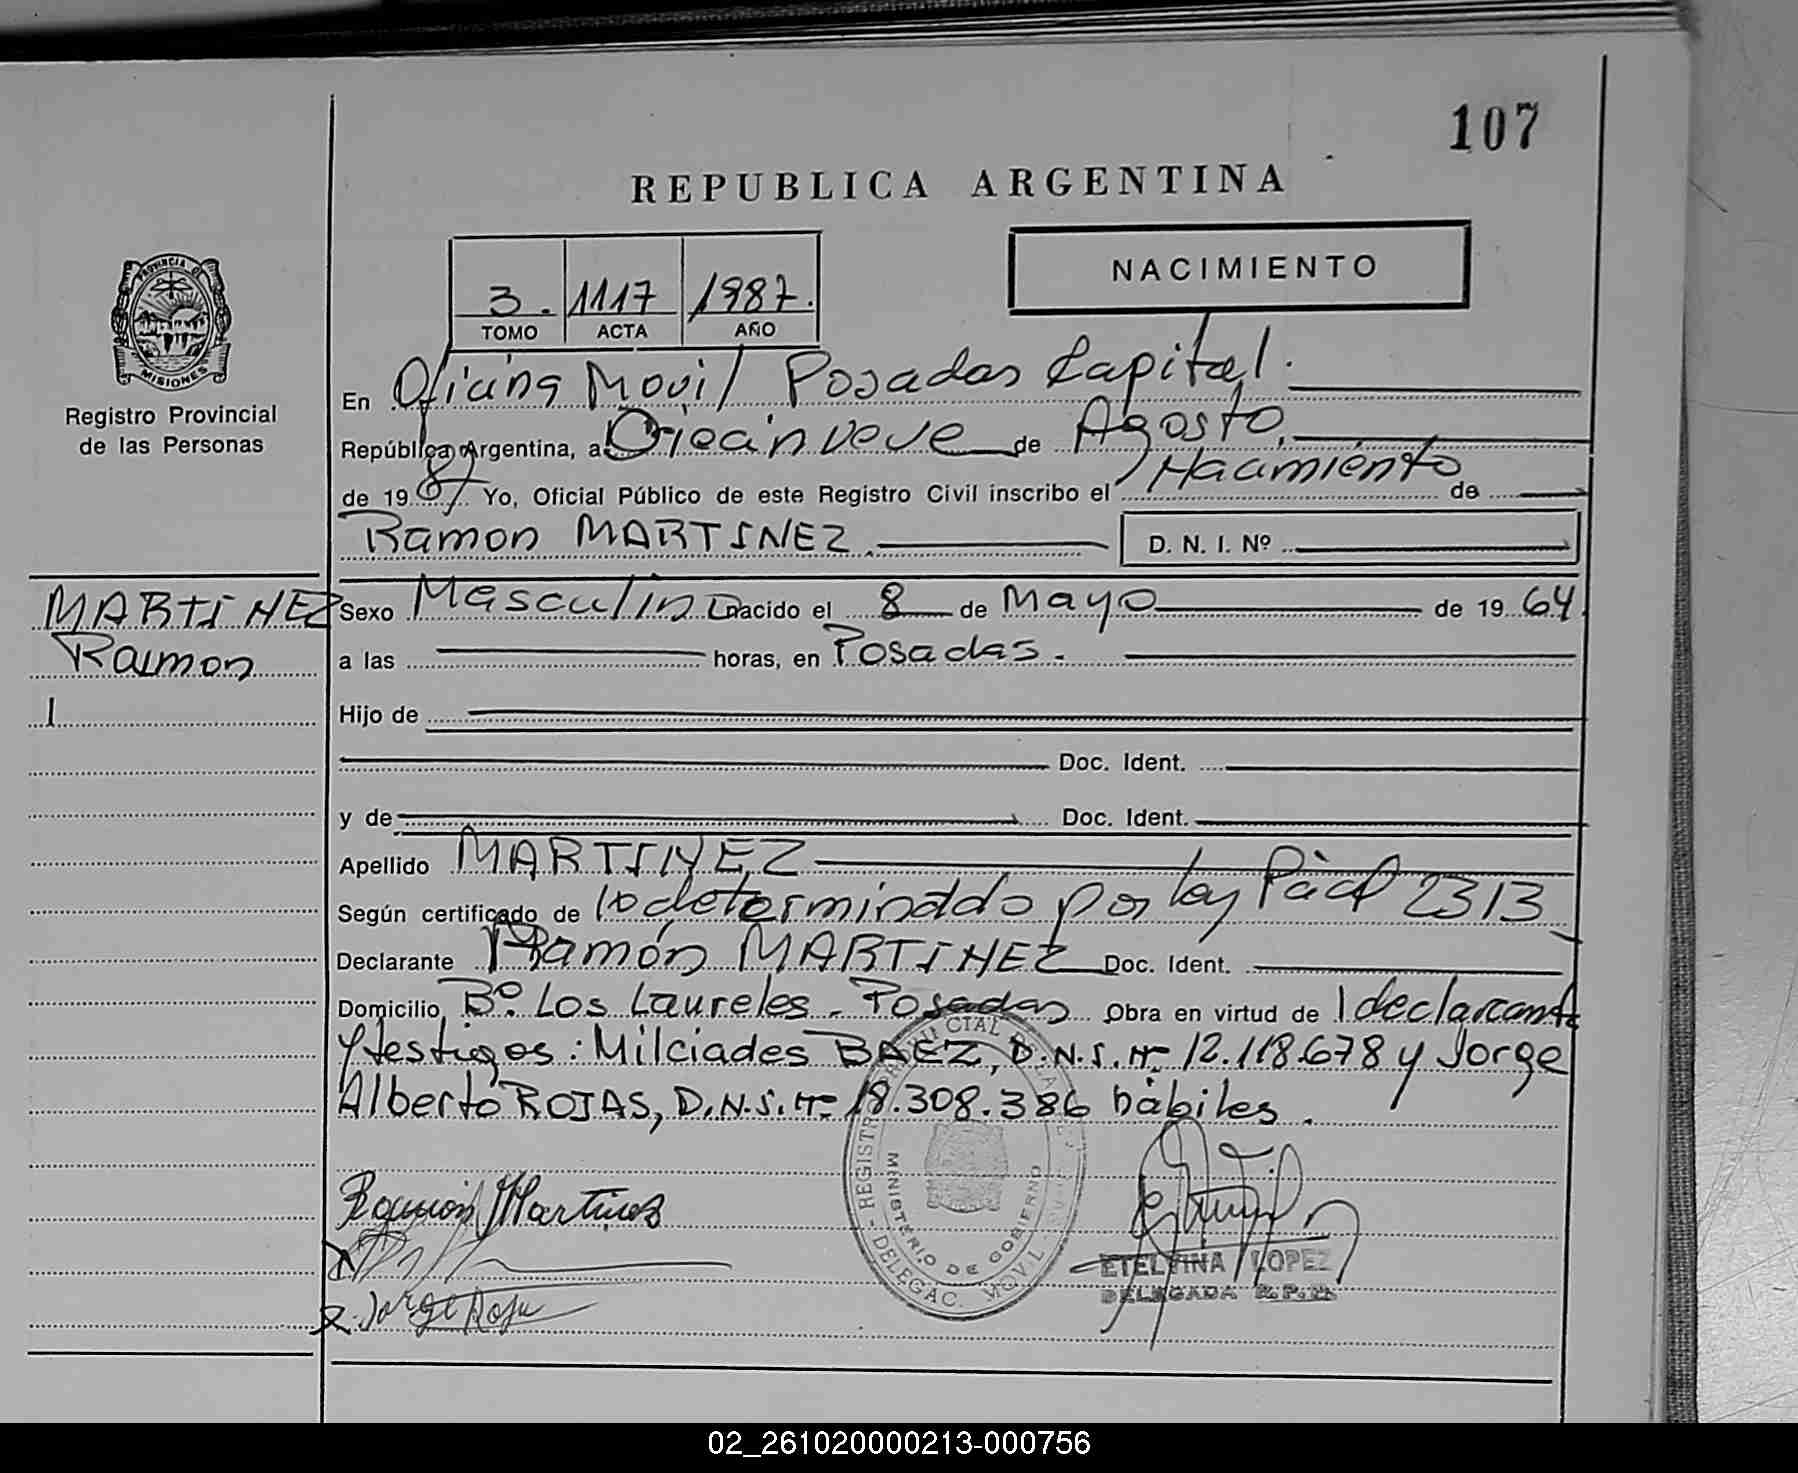 107
REPUBLICA ARGENTINA
NACIMIENTO
3. 1117 1987.
TOMO ACTA AÑO
PROVINCIA DE
MISIONES
Registro Provincial
de las Personas
En Oficina Movil Posadas Capital.
República Argentina, a Diecinueve de Agosto,
de 1987 Yo, Oficial Público de este Registro Civil inscribo el Nacimiento de
Ramon MARTINEZ. D. N. I. Nº
MARTINEZ
Ramon
1
Sexo Masculino nacido el 8 de Mayo de 1964.
a las horas, en Posadas.
Hijo de
Doc. Ident.
y de Doc. Ident.
Apellido MARTINEZ
Según certificado de lo determinado por ley 2313
Declarante Ramón MARTINEZ Doc. Ident.
Domicilio Bº. Los Laureles - Posadas Obra en virtud de l declarante
y testigos: Milciades BAEZ, D.N.I. Nº 12.118.678 y Jorge
Alberto ROJAS, D.N.I. Nº 18.308.386 hábiles.
Ramón Martinez
Jorge Roja
MINISTERIO DE GOBIERNO
DELEGAC. MOVIL
ETELVINA LOPEZ
DELEGADA R.P.P.
02_261020000213-000756